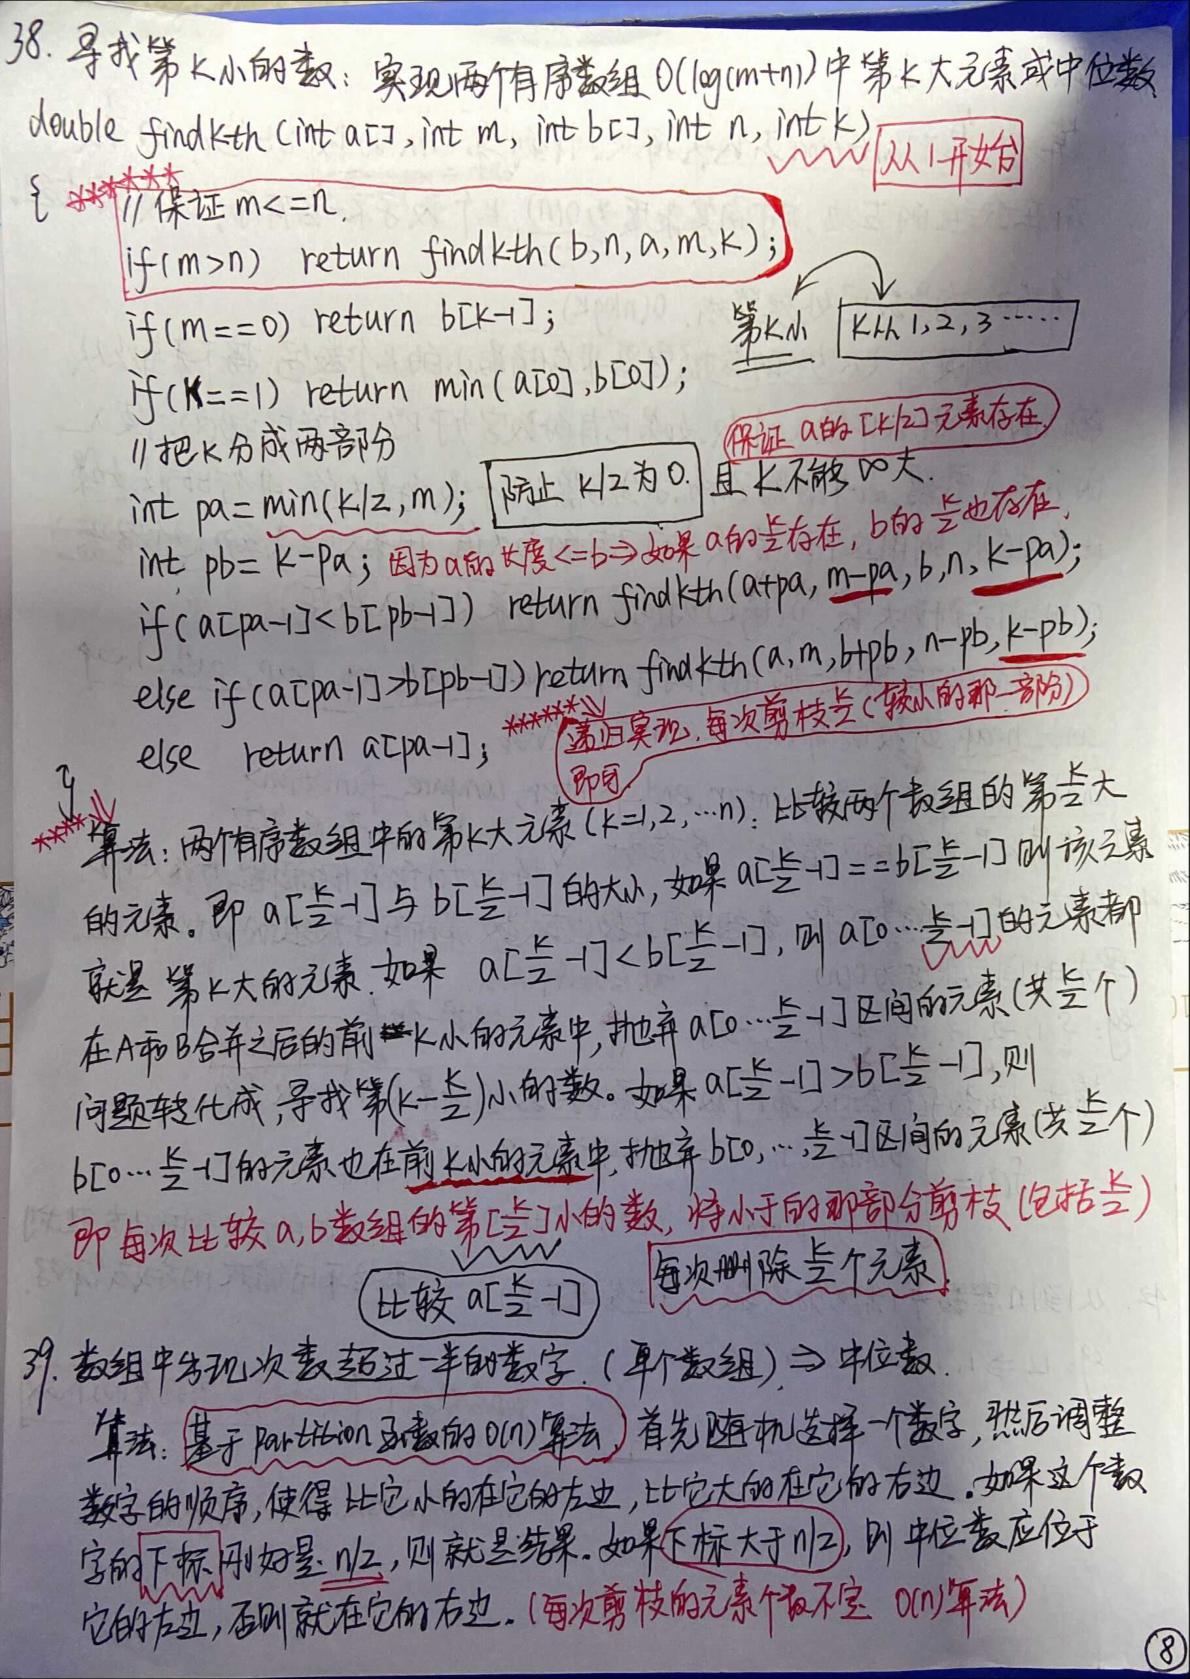 38. 寻找第K小的数：实现两个有序数组O(log(m+n))中第K大元素或中位数
double findkth (int a[], int m, int b[], int n, int k)
从1开始
{
******
//保证 m<=n.
if(m>n) return findkth(b,n,a,m,k);
if(m==0) return b[k-1];
第K小
Kth 1,2,3……
if(K==1) return min(a[0],b[0]);
//把K分成两部分
保证a的[k/2]元素存在
int pa=min(k/2,m);
防止 k/2为0.
且K不能∞大.
int pb= k-pa;
因为a的长度<=b⇒如果a的k/2存在, b的k/2也存在.
if(a[pa-1]<b[pb-1]) return findkth(a+pa, m-pa, b, n, k-pa);
else if(a[pa-1]>b[pb-1]) return findkth(a,m,b+pb,n-pb,k-pb);
else return a[pa-1];
******
递归实现,每次剪枝k/2(较小的那一部份)
即可.
}
****
算法：两个有序数组中的第K大元素(k=1,2,…n)：比较两个数组的第k/2大
的元素。即 a[k/2-1]与 b[k/2-1]的大小,如果 a[k/2-1]==b[k/2-1]则该元素
就是第K大的元素.如果 a[k/2-1]<b[k/2-1],则 a[0…k/2-1]的元素都
在A和B合并之后的前K小的元素中,抛弃 a[0…k/2-1]区间的元素(共k/2个)
问题转化成,寻找第(k-k/2)小的数。如果 a[k/2-1]>b[k/2-1],则
b[0…k/2-1]的元素也在前K小的元素中,抛弃 b[0,…,k/2-1]区间的元素(共k/2个)
即每次比较a,b数组的第[k/2]小的数,将小于的那部分剪枝(包括k/2)
比较 a[k/2-1]
每次删除k/2个元素.
39. 数组中出现次数超过一半的数字.(单个数组)⇒中位数.
算法：基于partition函数的O(n)算法,首先随机选择一个数字,然后调整
数字的顺序,使得比它小的在它的左边,比它大的在它的右边.如果这个数
字的下标刚好是n/2,则就是结果.如果下标大于n/2,则中位数应位于
它的左边,否则就在它的右边.(每次剪枝的元素个数不定 O(n)算法)
8